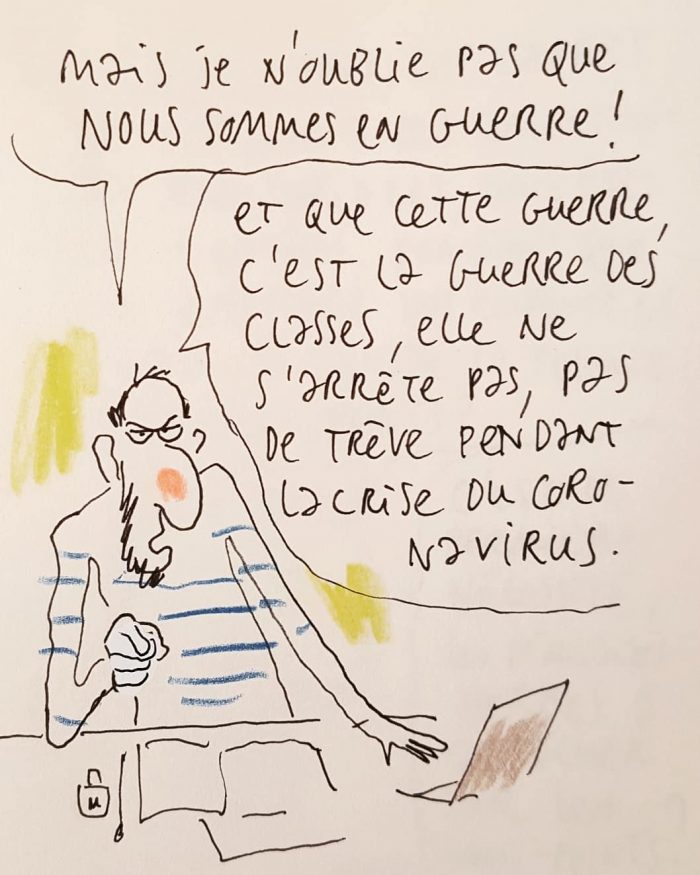 Mais je n'oublie pas que
nous sommes en guerre !
et que cette guerre,
c'est la guerre des
classes, elle ne
s'arrête pas, pas
de trêve pendant
la crise du coro-
navirus.